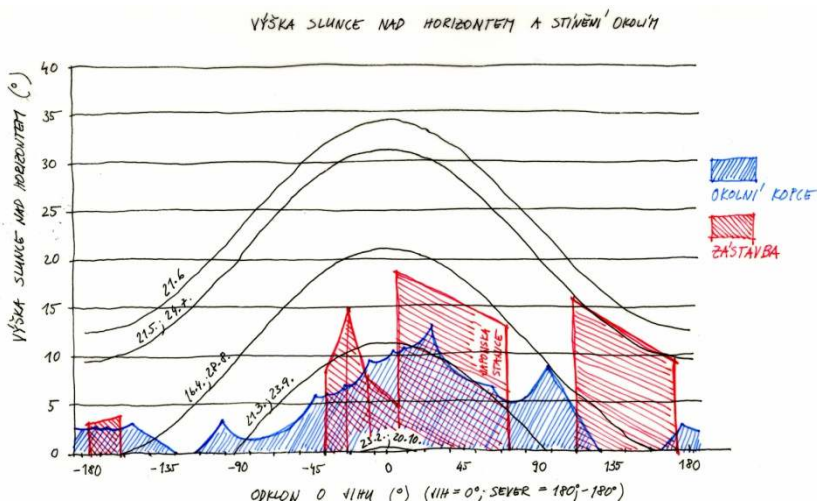 VÝŠKA SLUNCE NAD HORIZONTEM A STÍNĚNÍ OKOLÍM
VÝŠKA SLUNCE NAD HORIZONTEM (°)
40
35
30
25
20
15
10
5
0
21.6
21.5.; 24.7.
16.4.; 28.8.
21.3.; 23.9.
23.2.; 20.10.
JAPONSKA
STANICE
OKOLNÍ KOPCE
ZÁSTAVBA
-180
-135
-90
-45
0
45
90
135
180
ODKLON O JIHU (°) (JIH = 0°; SEVER = 180°; -180°)